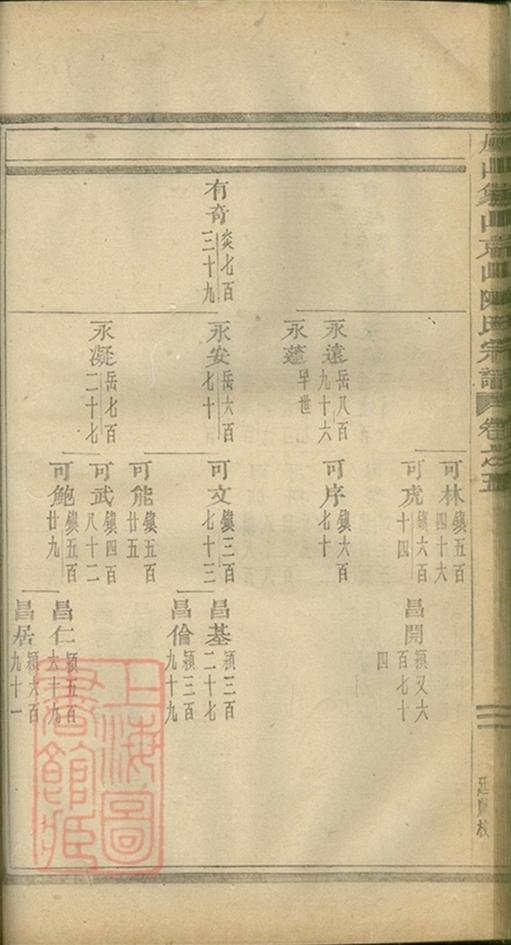 陳氏宗譜 卷之五
有奇 炎七百三十九
永遠 岳八百九十六
永蓬 早世
永安 岳六百七十
永凝 岳七百二十七
可林 鎮五百四十六
可虎 鎮六百十四
可序 鎮六百七十
可文 鎮三百七十三
可能 鎮五百廿五
可武 鎮四百八十二
可鮑 鎮五百廿九
昌開 潁又六百七十四
昌基 潁三百二十七
昌倫 潁三百九十九
昌仁 潁五百六十九
昌居 潁六百九十一
上海圖書館藏